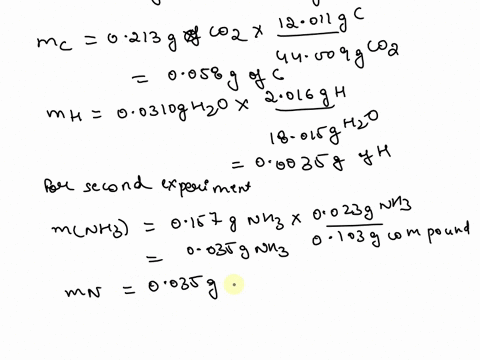 mC = 0.213 g of CO2 × 12.011 g C
44.009 g CO2
= 0.058 g of C
mH = 0.0310 g H2O × 2.016 g H
18.015 g H2O
= 0.0035 g of H
For second experiment
m(NH3) = 0.157 g NH3 × 0.023 g NH3
0.103 g compound
= 0.035 g NH3
mN = 0.035 g